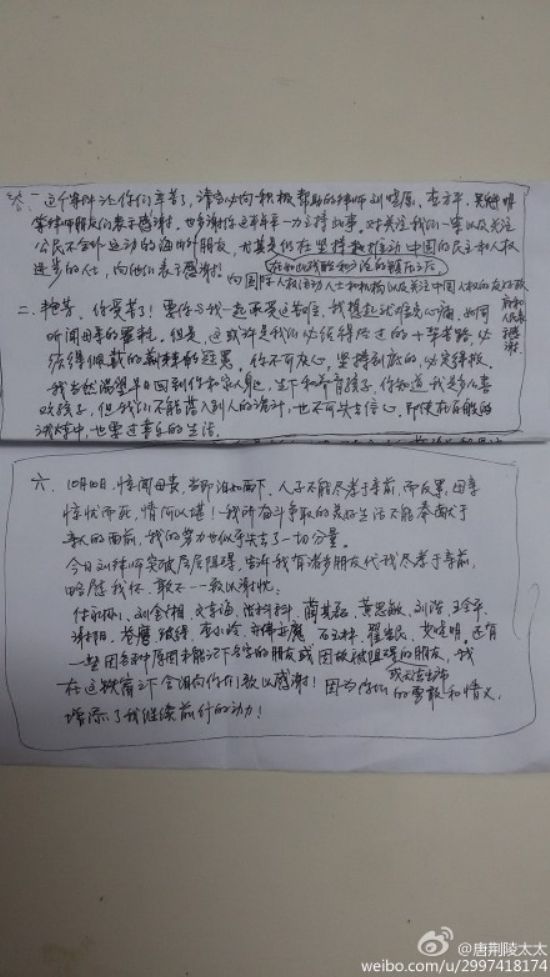 一 这个案件让你们辛苦了,请务必向积极帮助的律师刘晓原、李方平、吴魁明
等律师朋友们表示感谢。也多谢你这半年来一力支撑此事。对关注我们一案以及关注
公民不合作运动的海内外朋友,尤其是仍在坚持推动中国的民主和人权
进步的人士,向他们表示感谢!
向国际人权活动人士和机构以及关注中国人权的友好政
府和人民表示感谢
二、 你受苦了!要你与我一起承受这苦难,我想起就难免心痛,如同
听闻母亲的噩耗。但是,这或许是我们必须得背过的十架苦路,必
须得佩戴的荆棘的冠冕。你不可灰心,坚持到底的,必定得救。
我当然渴望早日回到你和家人身边,生下和养育孩子,你知道我是多么喜
欢孩子,但我们不能落入别人的诡计,也不可失去信心。即使在石般的
试炼中,也要过喜乐的生活。
六、10月10日,惊闻母丧,当即泪如雨下。人子不能尽孝于亲前,而反累母亲
惊忧而死,情何以堪!我所奋斗争取的美好生活不能奉献于
亲人的面前,我的努力也似乎失去了一切分量。
今日刘律师突破层层阻碍,告诉我有诸多朋友代我尽孝于亲前,
略慰我怀,敬不一一致以谢忱:
刘金湘、黄思敏、刘浩、王金平、
谢阳、石玉林、翟岩民、艾晓明,还有
一些因各种原因未能记下名字的朋友或因故被阻碍的朋友,我
或无法出席
在这铁窗之下含泪向你们致以感谢!因为你们的勇敢和情义,
增添了我继续前行的动力!
@唐荆陵太太
weibo.com/u/2997418174